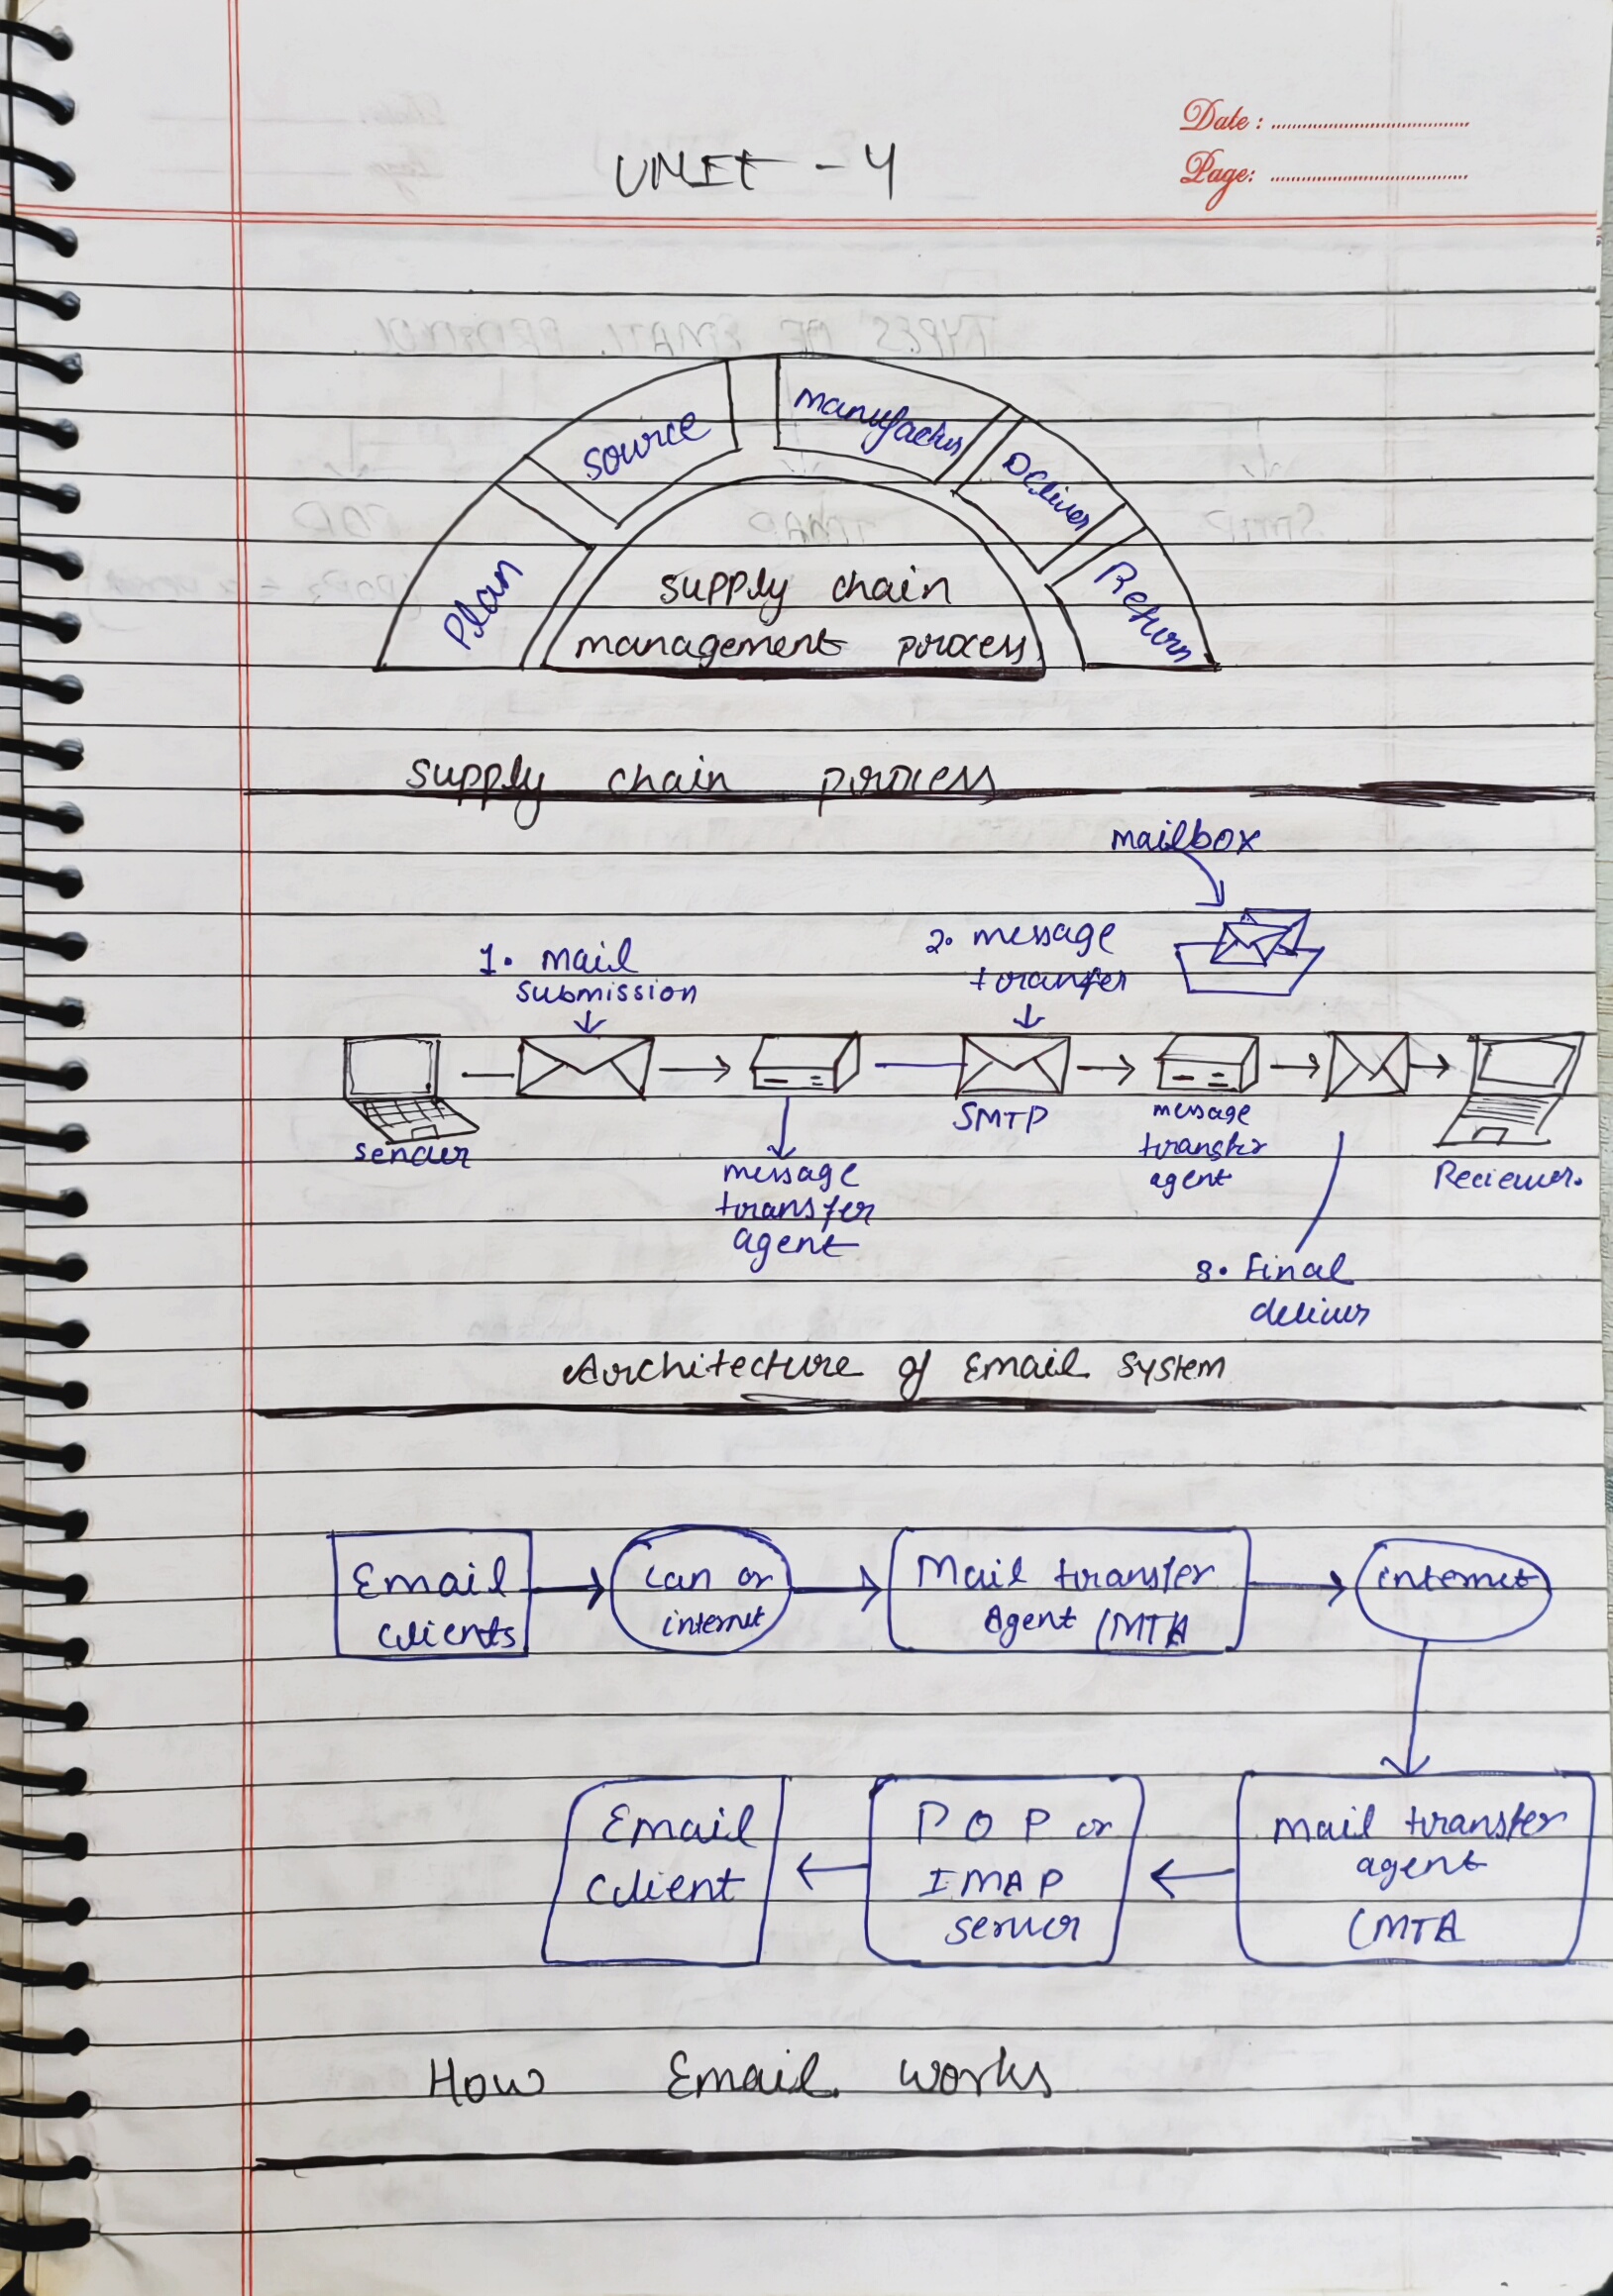 Date :
Page:
UNIT - 4
Plan
Source
Manufactur
Deliver
Return
Supply chain
management process
Supply chain process
mailbox
1. Mail
submission
2. message
tranfer
Sender
message
transfer
agent
SMTP
message
transfer
agent
Reciever.
3. Final
deliver
Architecture of Email System
Email
Clients
Lan or
internet
Mail transfer
Agent (MTA
internet
Email
Client
POP or
IMAP
server
Mail transfer
agent
(MTA
How Email works